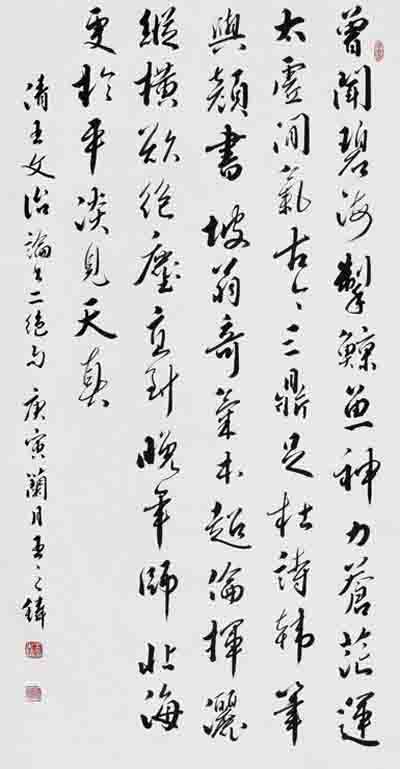 曾聞碧海掣鯨魚神力蒼茫運
太虛間氣古今三鼎足杜詩韓筆
與顏書坡翁奇氣本超倫揮灑
縱橫欲絕塵直到晚年師北海
更於平淡見天真
清王文治論書二絕句庚寅蘭月